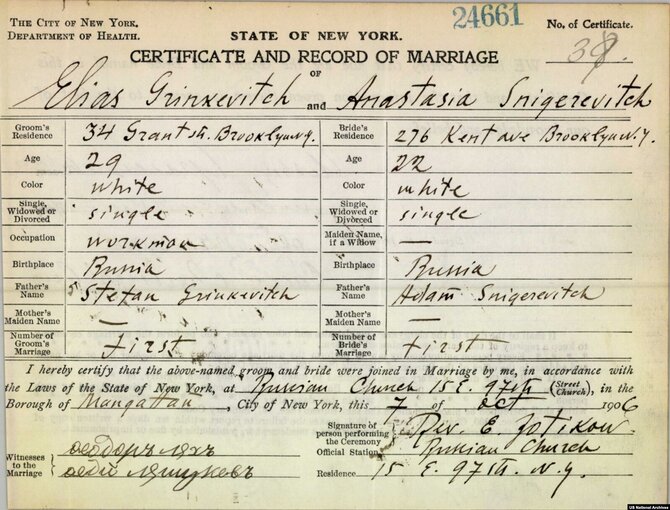 THE CITY OF NEW YORK.
DEPARTMENT OF HEALTH.
24661
No. of Certificate.
STATE OF NEW YORK.
CERTIFICATE AND RECORD OF MARRIAGE
OF
Elias Grinkevitch and Anastasia Snigerevitch
Groom's Residence 34 Grant st. Brooklyn N.Y. Bride's Residence 276 Kent ave Brooklyn N.Y.
Age 29 Age 22
Color white Color white
Single, Widowed or Divorced single Single, Widowed or Divorced single
Occupation workman Maiden Name, if a Widow —
Birthplace Russia Birthplace Russia
Father's Name Stefan Grinkevitch Father's Name Adam Snigerevitch
Mother's Maiden Name — Mother's Maiden Name —
Number of Groom's Marriage first Number of Bride's Marriage first
I hereby certify that the above-named groom and bride were joined in Marriage by me, in accordance with
the Laws of the State of New York, at Russian Church 15 E. 97th (Street Church), in the
Borough of Mangattan, City of New York, this 7 of oct 1906
Signature of person performing the Ceremony Rev. E. Zotikow
Official Station Russian Church
Witnesses to the Marriage
Residence 15 E. 97th. N.Y.
US National Archives